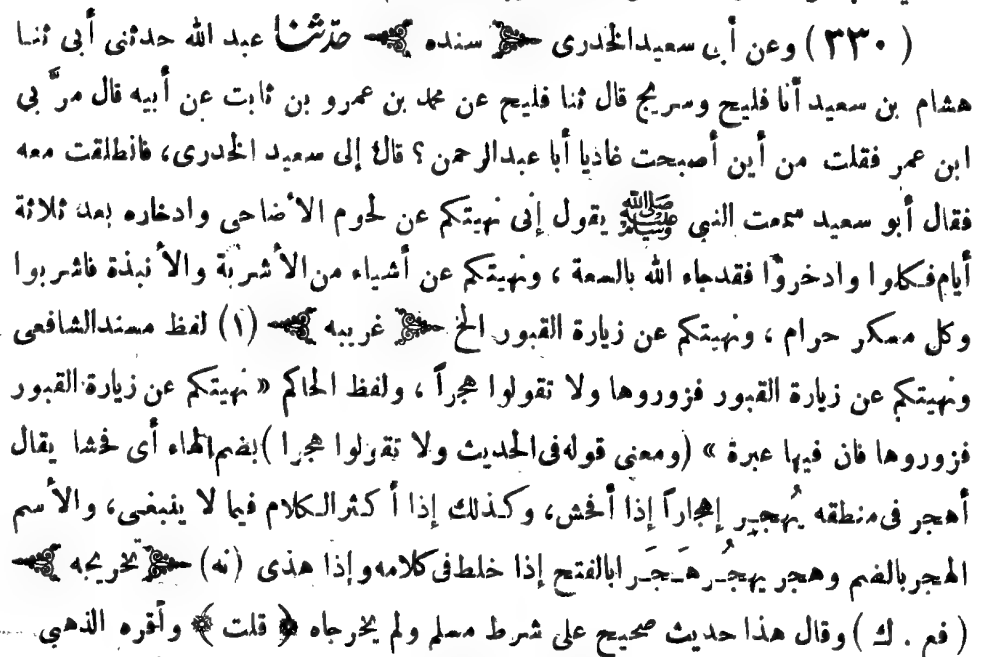 ( ٣٣٠ ) وعن أبى سعيدالخدرى ﴿ سنده ﴾ حدّثنا عبد الله حدثنى أبى ثنا
هشام بن سعيد أنا فليح وسريج قال ثنا فليح عن محمد بن عمرو بن ثابت عن أبيه قال مرَّ بي
ابن عمر فقلت من أين أصبحت غاديا أبا عبدالرحمن ؟ قال إلى سعيد الخدرى، فانطلقت معه
فقال أبو سعيد سمعت النبي ﷺ يقول إنى نهيتكم عن لحوم الأضاحى وادخاره بعد ثلاثة
أيام فكلوا وادخروا فقدجاء الله بالسعة ، ونهيتكم عن أشياء من الأشربة والأنبذة فاشربوا
وكل مسكر حرام ، ونهيتكم عن زيارة القبور الخ ﴿ غريبه ﴾ (١) لفظ مسندالشافعى
ونهيتكم عن زيارة القبور فزوروها ولا تقولوا هجراً ، ولفظ الحاكم « نهيتكم عن زيارة القبور
فزوروها فان فيها عبرة » (ومعنى قوله فى الحديث ولا تقولوا هجرا )بضم الهاء أى فحشا يقال
أهجر فى منطقه يُهجِر إهجاراً إذا أفحش، وكذلك إذا أكثر الكلام فيما لا ينبغى، والأسم
الهجر بالضم وهجر يهجُر هَجَرا بالفتح إذا خلط فى كلامه وإذا هذى (نه) ﴿ تخريجه ﴾
( فع . ك ) وقال هذا حديث صحيح على شرط مسلم ولم يخرجاه ﴿ قلت ﴾ وأقره الذهبي